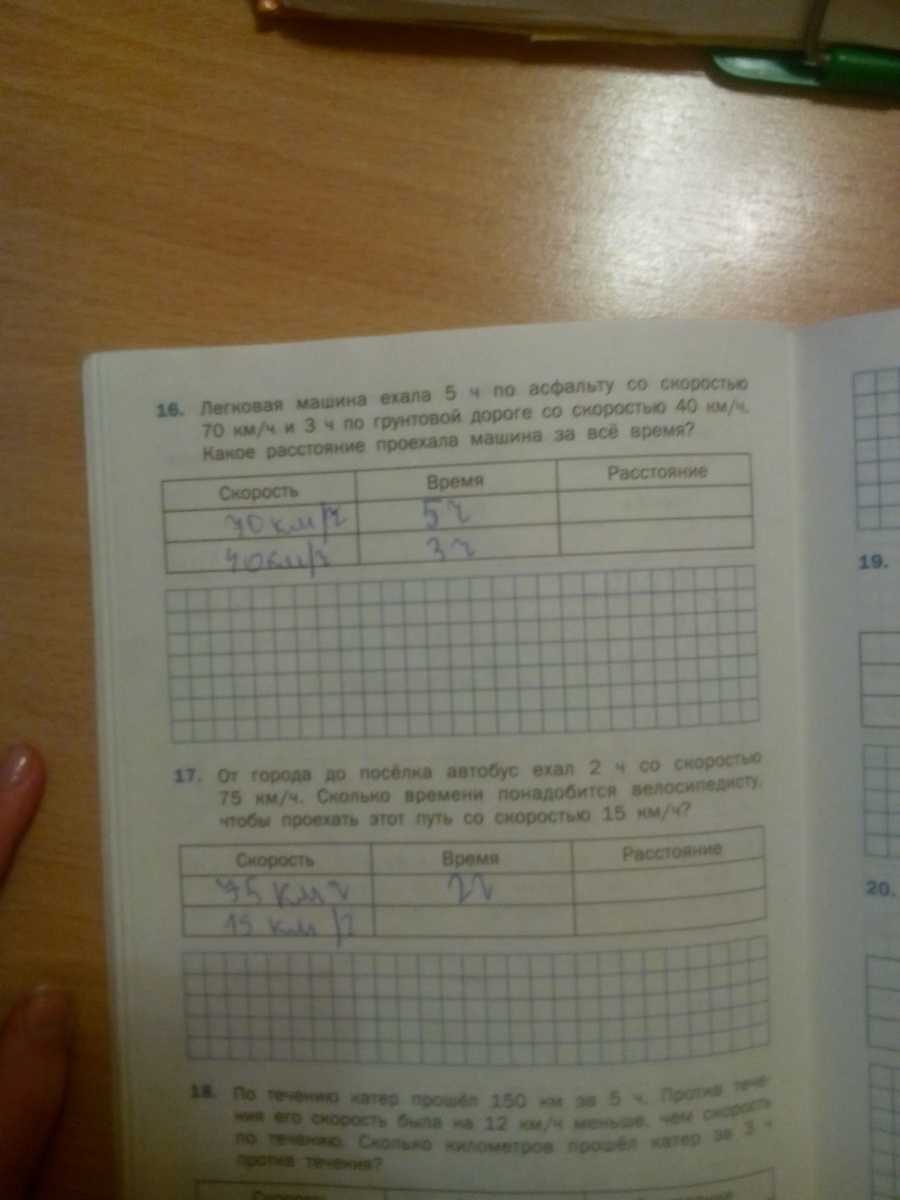 16. Легковая машина ехала 5 ч по асфальту со скоростью
70 км/ч и 3 ч по грунтовой дороге со скоростью 40 км/ч.
Какое расстояние проехала машина за всё время?
Скорость Время Расстояние
70 км/ч 5 ч
40 км/ч 3 ч
17. От города до посёлка автобус ехал 2 ч со скоростью
75 км/ч. Сколько времени понадобится велосипедисту,
чтобы проехать этот путь со скоростью 15 км/ч?
Скорость Время Расстояние
75 км ч 2 ч
15 км/ч
18. По течению катер прошёл 150 км за 5 ч. Против тече-
ния его скорость была на 12 км/ч меньше, чем скорость
по течению. Сколько километров прошёл катер за 3 ч
против течения?
Скорость
19.
20.